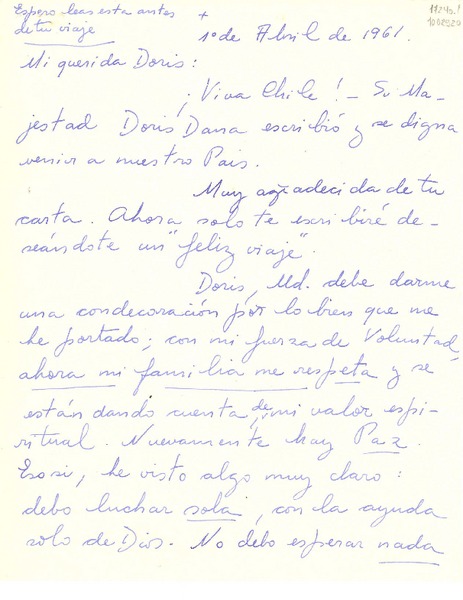 Espero leas esta antes
de tu viaje
+
1º de Abril de 1961.
Mi querida Doris:
¡Viva Chile! - Su Ma-
jestad Doris Dana escribió y se digna
venir a nuestro Pais.
Muy agradecida de tu
carta. Ahora solo te escribiré de-
seándote un "feliz viaje".
Doris, Ud. debe darme
una condecoración por lo bien que me
he portado; con mi fuerza de Voluntad,
ahora mi familia me respeta y se
están dando cuenta de mi valor espi-
ritual. Nuevamente hay Paz.
Eso si, he visto algo muy claro:
debo luchar sola, con la ayuda
solo de Dios. No debo esperar nada